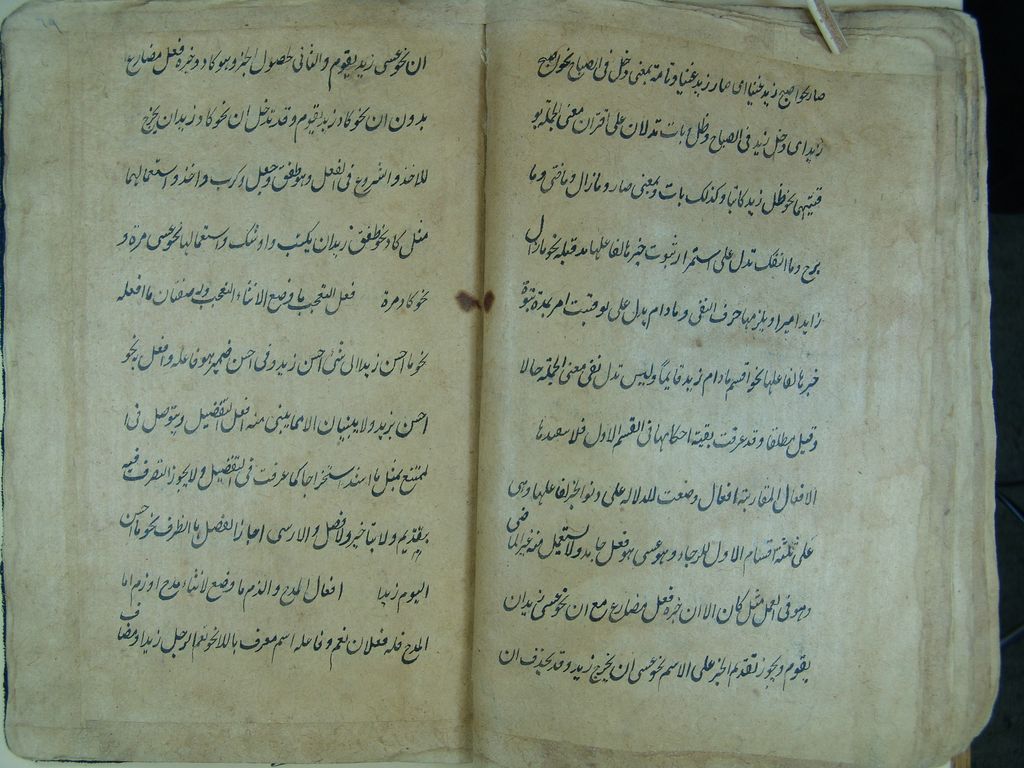 صار نحو اصبح زيد غنيا اى صار زيد غنيا وتامة بمعنى دخل فى الصباح نحو اصبح
زيد اى دخل زيد فى الصباح وظل وبات تدلان على اقتران معنى الجملة بو
قتيهما نحو ظل زيد كاتبا وكذلك بات وبمعنى صار وما زال وما فتى وما
برح وما انفك تدل على استمرار ثبوت خبرها لفاعلها مذ قبله نحو ما زال
زيد اميرا ويلزمها حرف النفى وما دام يدل على توقيت امر بمدة ثبوة
خبرها لفاعلها نحو اقسم ما دام زيد قايما وليس تدل نفى معنى الجملة حالا
وقيل مطلقا وقد عرفت بقية احكامها فى القسم الاول فلا نعيدها
الافعال المقاربة افعال وضعت للدلالة على دنو الخبر لفاعلها وهى
على ثلثة اقسام الاول للرجاء وهو عسى وهو فعل جامد ولا يستعمل منه غير الماضى
وهو فى العمل مثل كان الا ان خبره فعل مضارع مع ان نحو عسى زيد ان
يقوم ويجوز تقديم الخبر على الاسم نحو عسى ان يخرج زيد وقد يحذف ان
ان نحو عسى زيد يقوم والثانى لحصول الخبر وهو كاد وخبره فعل مضارع
بدون ان نحو كاد زيد يقوم وقد تدخل ان نحو كاد زيد ان يخرج
للاخذ والشروع فى الفعل وهو طفق وجعل وكرب واخذ واستعمالها
مثل كاد نحو طفق زيد ان يكتب واوشك واستعمالها نحو عسى مرة و
نحو كاد مرة فعل التعجب ما وضع لانشاء التعجب وله صيغتان ما افعله
نحو ما احسن زيدا اى شئ احسن زيد وفى احسن ضمير هو فاعله وافعل به نحو
احسن بزيد ولا يبنيان الا مما يبنى منه افعل التفضيل ويتوصل فى ا
لممتنع بمثل ما اشد استخراجا كما عرفت فى التفضيل ولا يجوز التصرف فيه
بتقديم ولا بتاخير ولا فصل والا رسى اجاز الفصل بالظرف نحو ما احسن
اليوم زيدا افعال المدح والذم ما وضع لانشاء مدح او ذم اما
المدح فله فعلان نعم وفاعله اسم معرف باللام نحو نعم الرجل زيد او مضاف